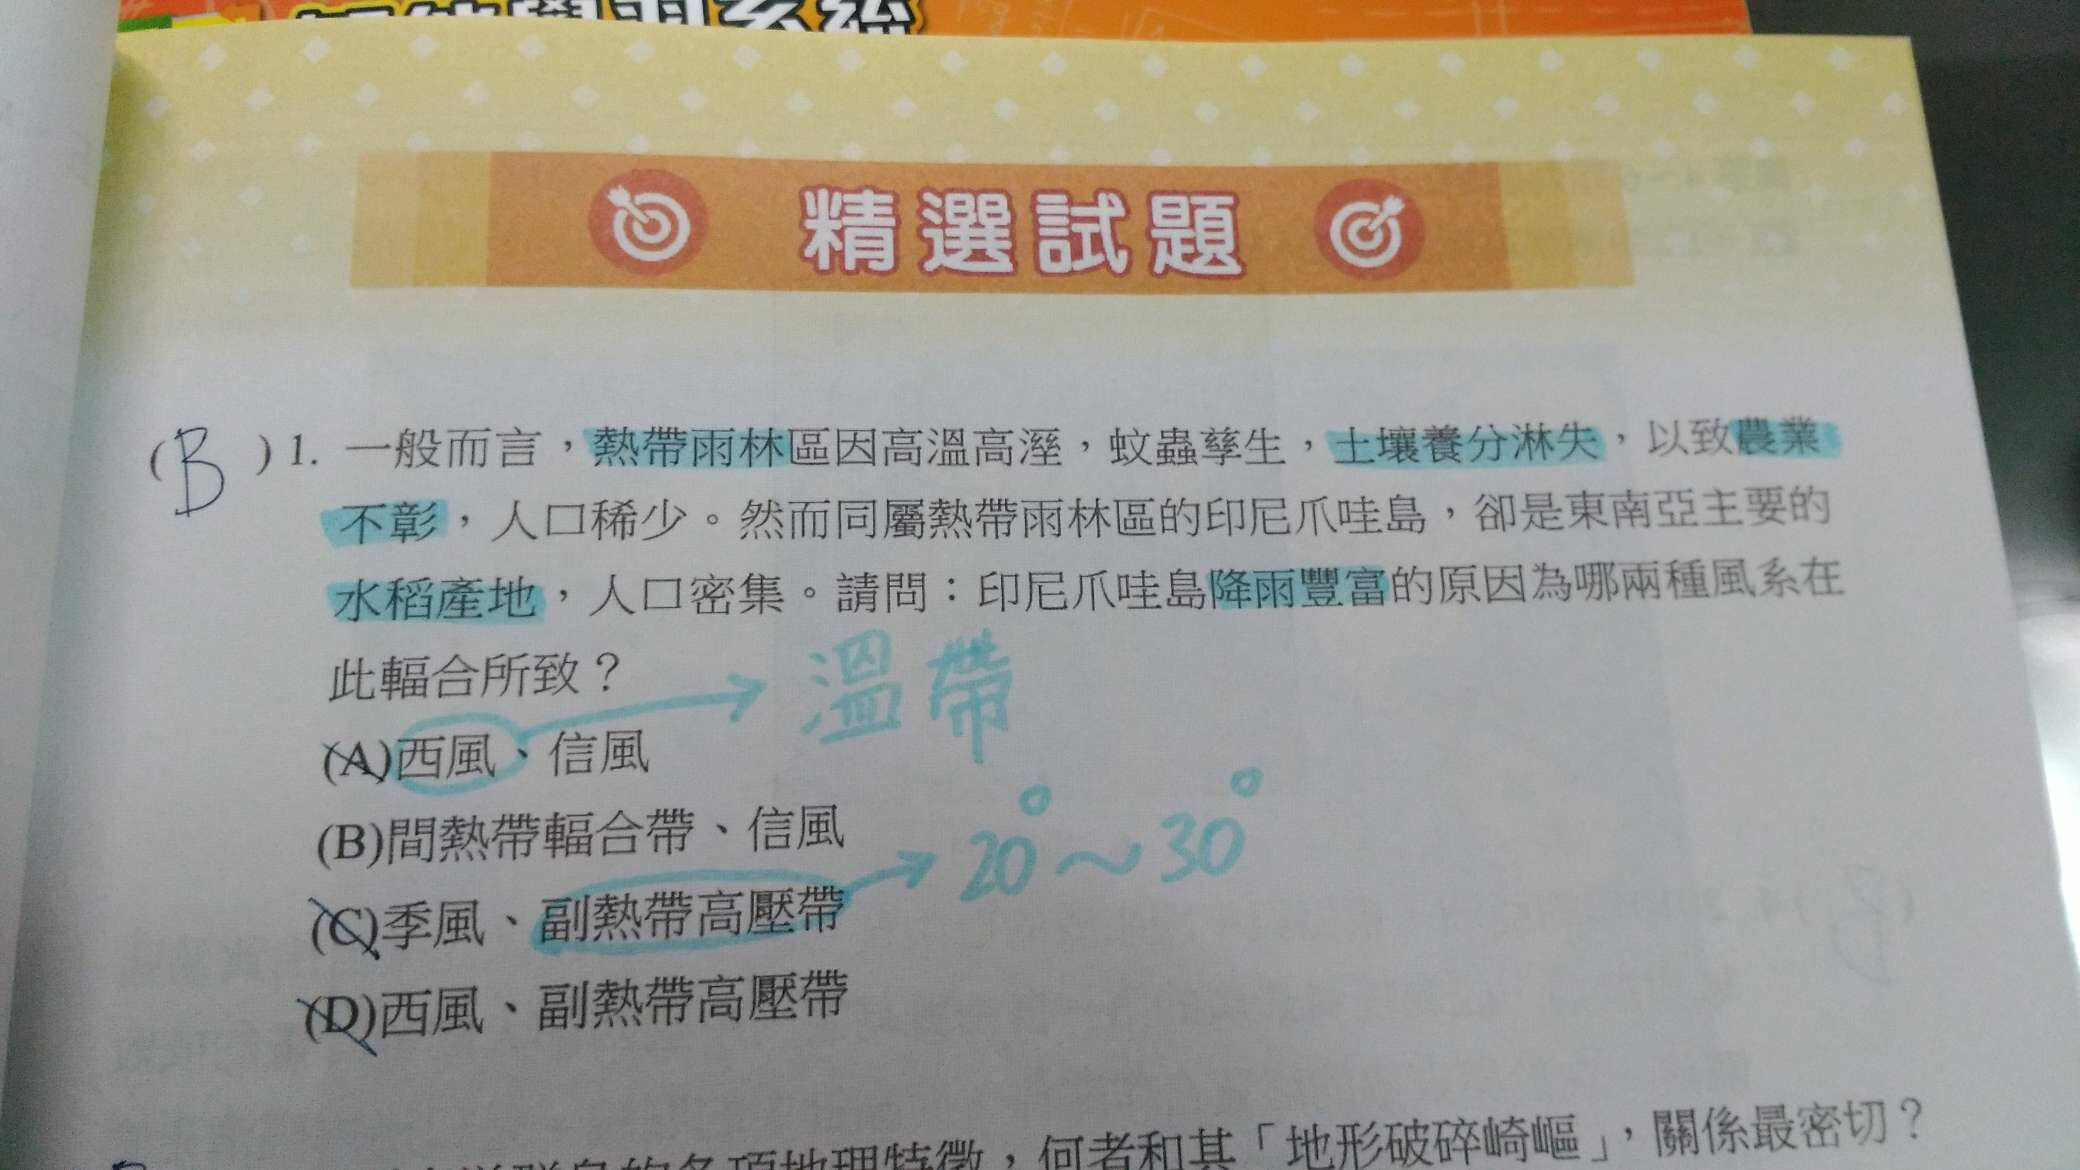 學習系統
精選試題
(B)1. 一般而言,熱帶雨林區因高溫高溼,蚊蟲孳生,土壤養分淋失,以致農業
不彰,人口稀少。然而同屬熱帶雨林區的印尼爪哇島,卻是東南亞主要的
水稻產地,人口密集。請問:印尼爪哇島降雨豐富的原因為哪兩種風系在
此輻合所致?
溫帶
(A)西風、信風
(B)間熱帶輻合帶、信風
20°~30°
(C)季風、副熱帶高壓帶
(D)西風、副熱帶高壓帶
的各項地理特徵,何者和其「地形破碎崎嶇」,關係最密切?